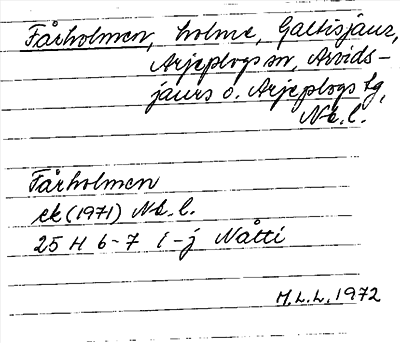 Fårholmen, holme, Galtisjaur,
Arjeplogs sn, Arvids-
jaurs o. Arjeplogs tg,
Nb. l.
Fårholmen
ek (1971) Nb. l.
25 H 6-7 i-j Nåtti
H.L.L. 1972